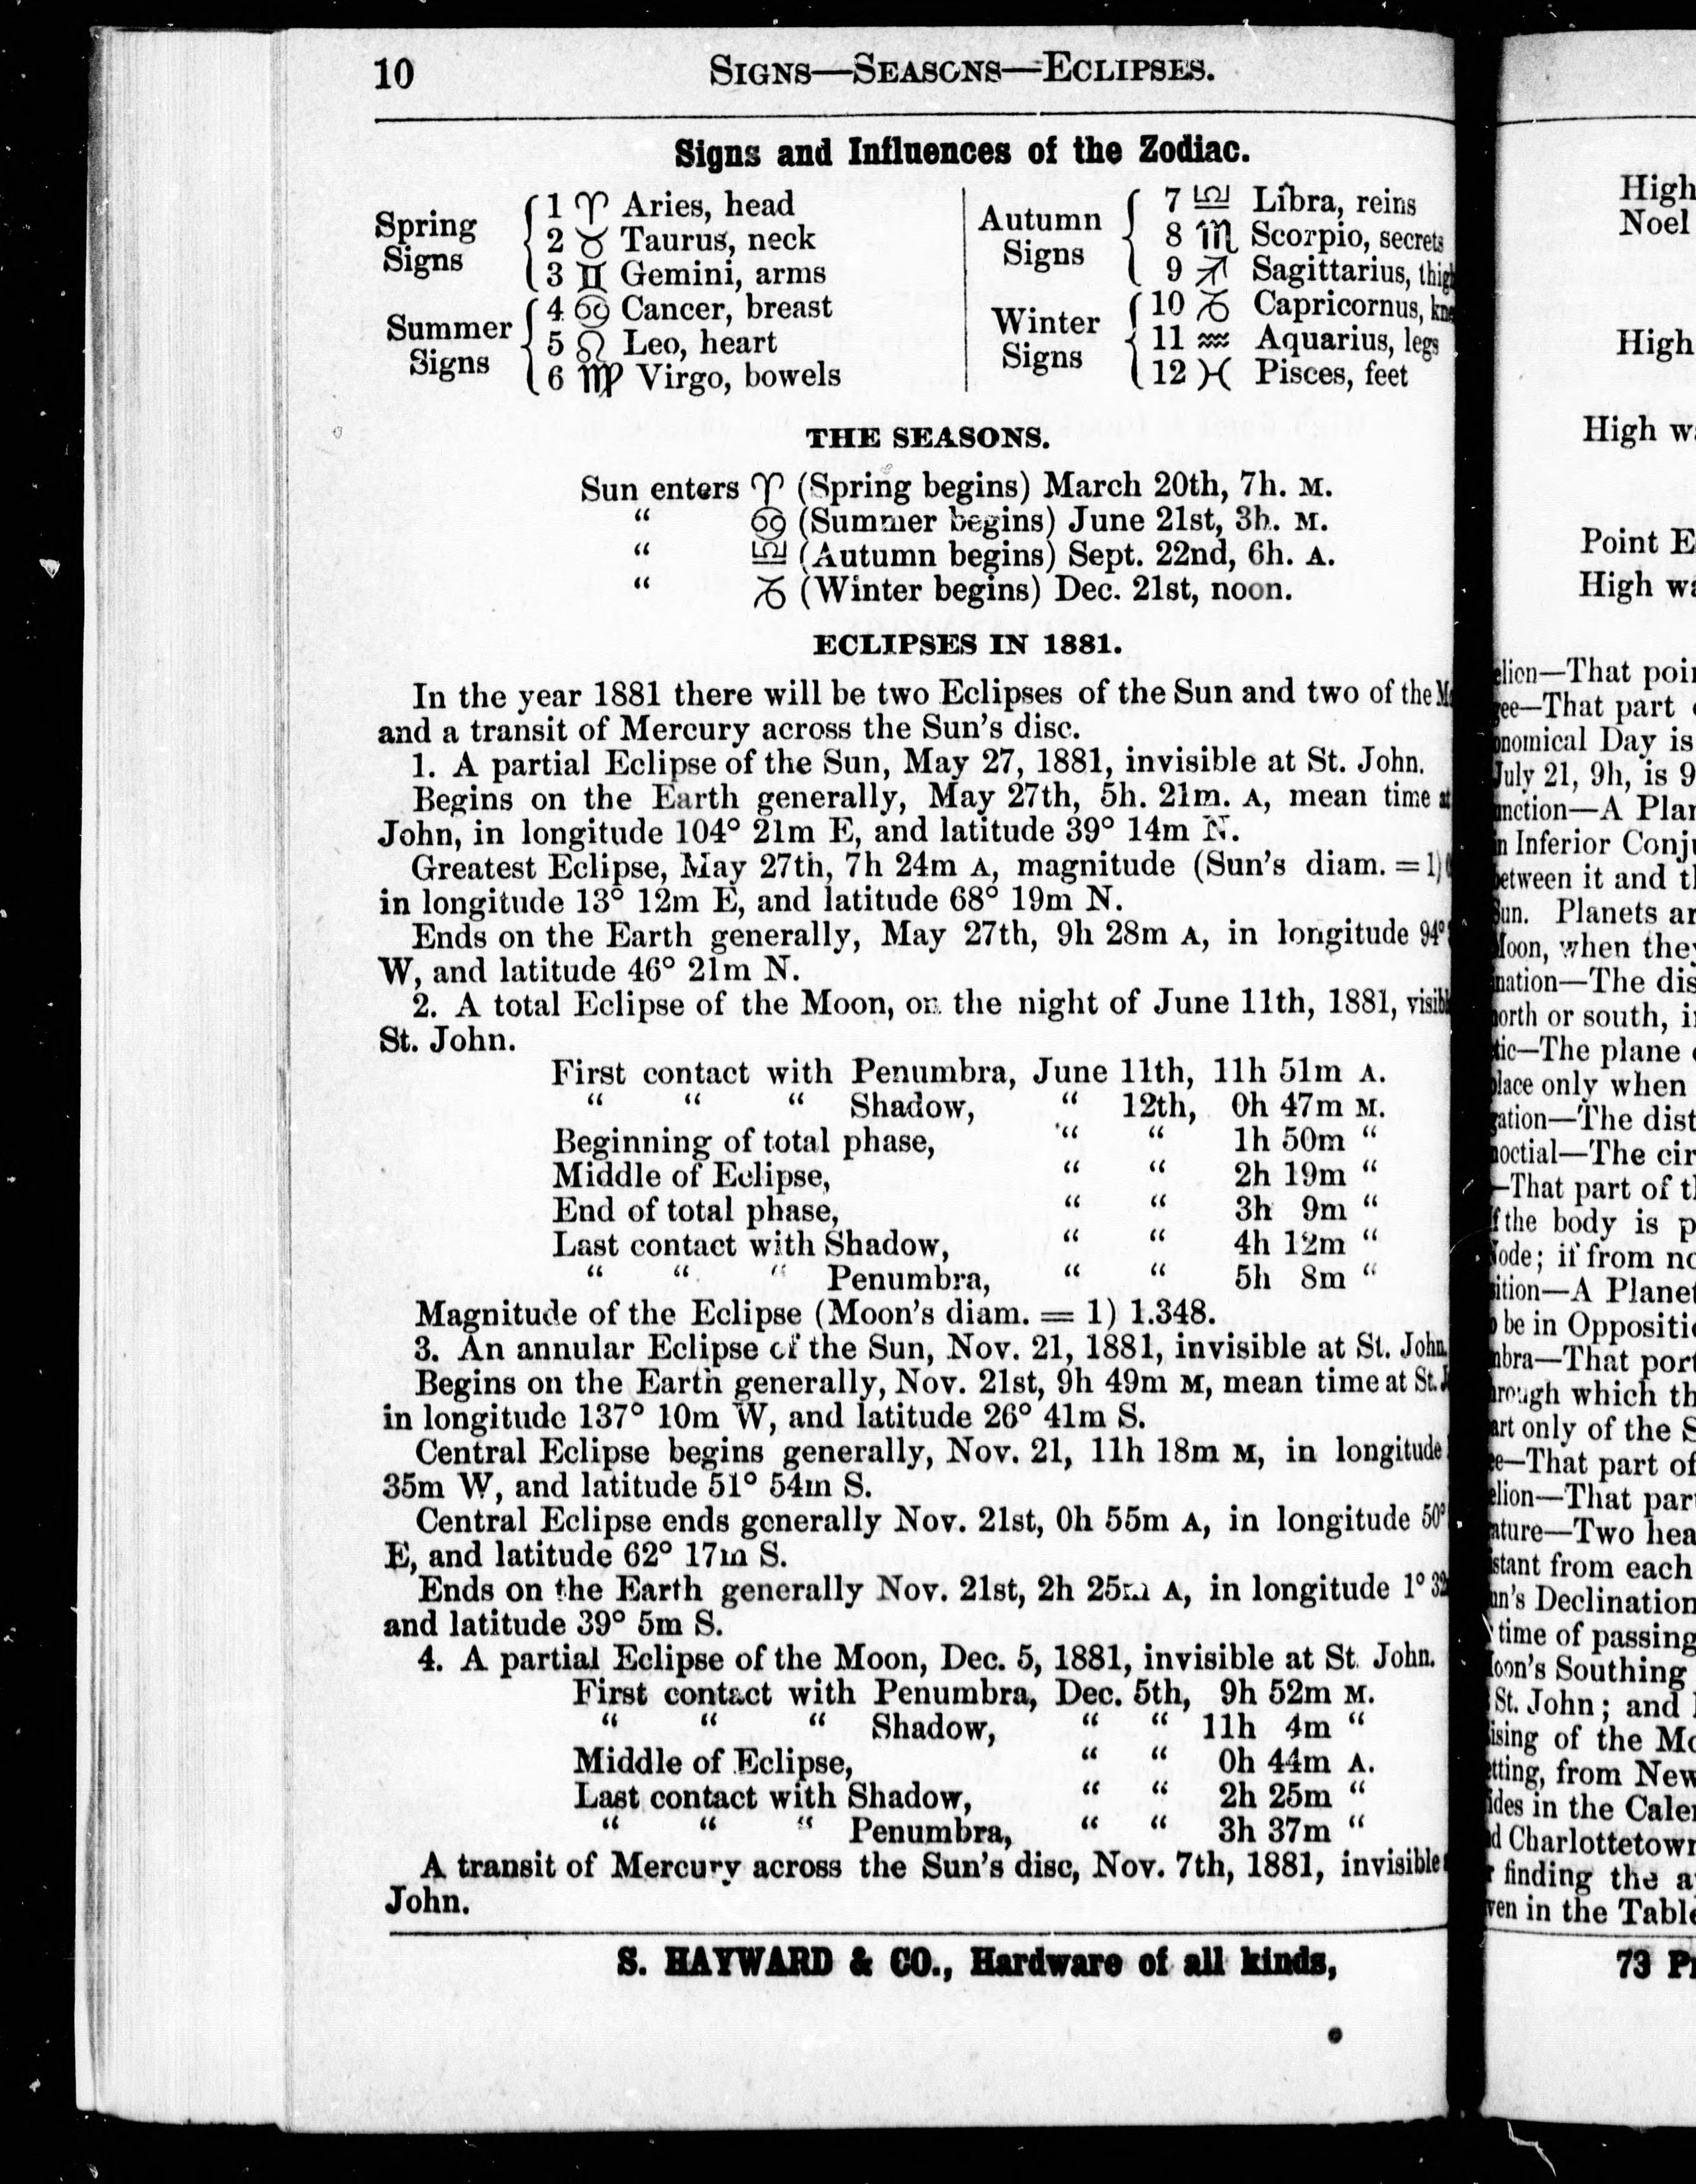 10 SIGNS—SEASONS—ECLIPSES.
Signs and Influences of the Zodiac.
Spring Signs
1 ♈ Aries, head
2 ♉ Taurus, neck
3 ♊ Gemini, arms
Summer Signs
4 ♋ Cancer, breast
5 ♌ Leo, heart
6 ♍ Virgo, bowels
Autumn Signs
7 ♎ Libra, reins
8 ♏ Scorpio, secrets
9 ♐ Sagittarius,
Winter Signs
10 ♑ Capricornus,
11 ♒ Aquarius, legs
12 ♓ Pisces, feet
THE SEASONS.
Sun enters ♈ (Spring begins) March 20th, 7h. M.
“ ♋ (Summer begins) June 21st, 3h. M.
“ ♎ (Autumn begins) Sept. 22nd, 6h. A.
“ ♑ (Winter begins) Dec. 21st, noon.
ECLIPSES IN 1881.
In the year 1881 there will be two Eclipses of the Sun and two of the
and a transit of Mercury across the Sun's disc.
1. A partial Eclipse of the Sun, May 27, 1881, invisible at St. John.
Begins on the Earth generally, May 27th, 5h. 21m. A, mean time
John, in longitude 104° 21m E, and latitude 39° 14m N.
Greatest Eclipse, May 27th, 7h 24m A, magnitude (Sun's diam. = 1)
in longitude 13° 12m E, and latitude 68° 19m N.
Ends on the Earth generally, May 27th, 9h 28m A, in longitude 94°
W, and latitude 46° 21m N.
2. A total Eclipse of the Moon, on the night of June 11th, 1881,
St. John.
First contact with Penumbra, June 11th, 11h 51m A.
“ “ “ Shadow, “ 12th, 0h 47m M.
Beginning of total phase, “ “ 1h 50m “
Middle of Eclipse, “ “ 2h 19m “
End of total phase, “ “ 3h 9m “
Last contact with Shadow, “ “ 4h 12m “
“ “ “ Penumbra, “ “ 5h 8m “
Magnitude of the Eclipse (Moon's diam. = 1) 1.348.
3. An annular Eclipse of the Sun, Nov. 21, 1881, invisible at St. John.
Begins on the Earth generally, Nov. 21st, 9h 49m M, mean time at St.
in longitude 137° 10m W, and latitude 26° 41m S.
Central Eclipse begins generally, Nov. 21, 11h 18m M, in longitude
35m W, and latitude 51° 54m S.
Central Eclipse ends generally Nov. 21st, 0h 55m A, in longitude 50°
E, and latitude 62° 17m S.
Ends on the Earth generally Nov. 21st, 2h 25m A, in longitude 1°
and latitude 39° 5m S.
4. A partial Eclipse of the Moon, Dec. 5, 1881, invisible at St. John.
First contact with Penumbra, Dec. 5th, 9h 52m M.
“ “ “ Shadow, “ “ 11h 4m “
Middle of Eclipse, “ “ 0h 44m A.
Last contact with Shadow, “ “ 2h 25m “
“ “ “ Penumbra, “ “ 3h 37m “
A transit of Mercury across the Sun's disc, Nov. 7th, 1881, invisible
John.
S. HAYWARD & CO., Hardware of all kinds,
High
Noel
High
High
Point E
High
—That
—That part
Day is
July 21, 9h, is 9
—A
Inferior
between it and
Sun. Planets
Moon, when they
—The
north or south,
—The plane
place only when
—The
—The
—That part of
the body is
Node; if from
—A Planet
be in
—That
through which
only of the
—That part of
—That
—Two
from each
Declination
time of passing
Moon's Southing
St. John; and
of the
from New
in the
Charlottetown
finding the
in the
73